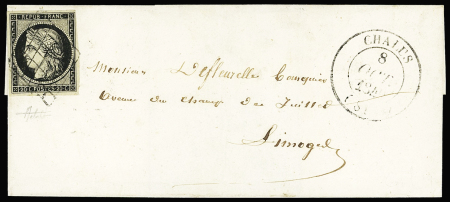 REPUB. FRANC.
20 C. POSTES 20 C.
CHALUS
8
OCT.
(83)
Monsieur Banquier
Avenue du champ de Juillet
Limoges